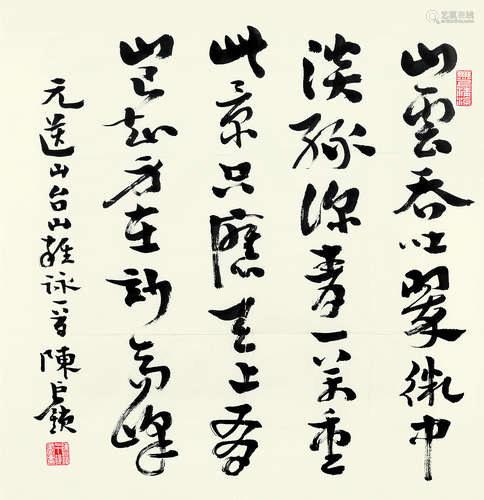 山雲吞吐翠微中
淡綠深青一萬重
此景只應天上有
豈知身在妙高峰
元遺山台山雜詠一首 陳巨鎖